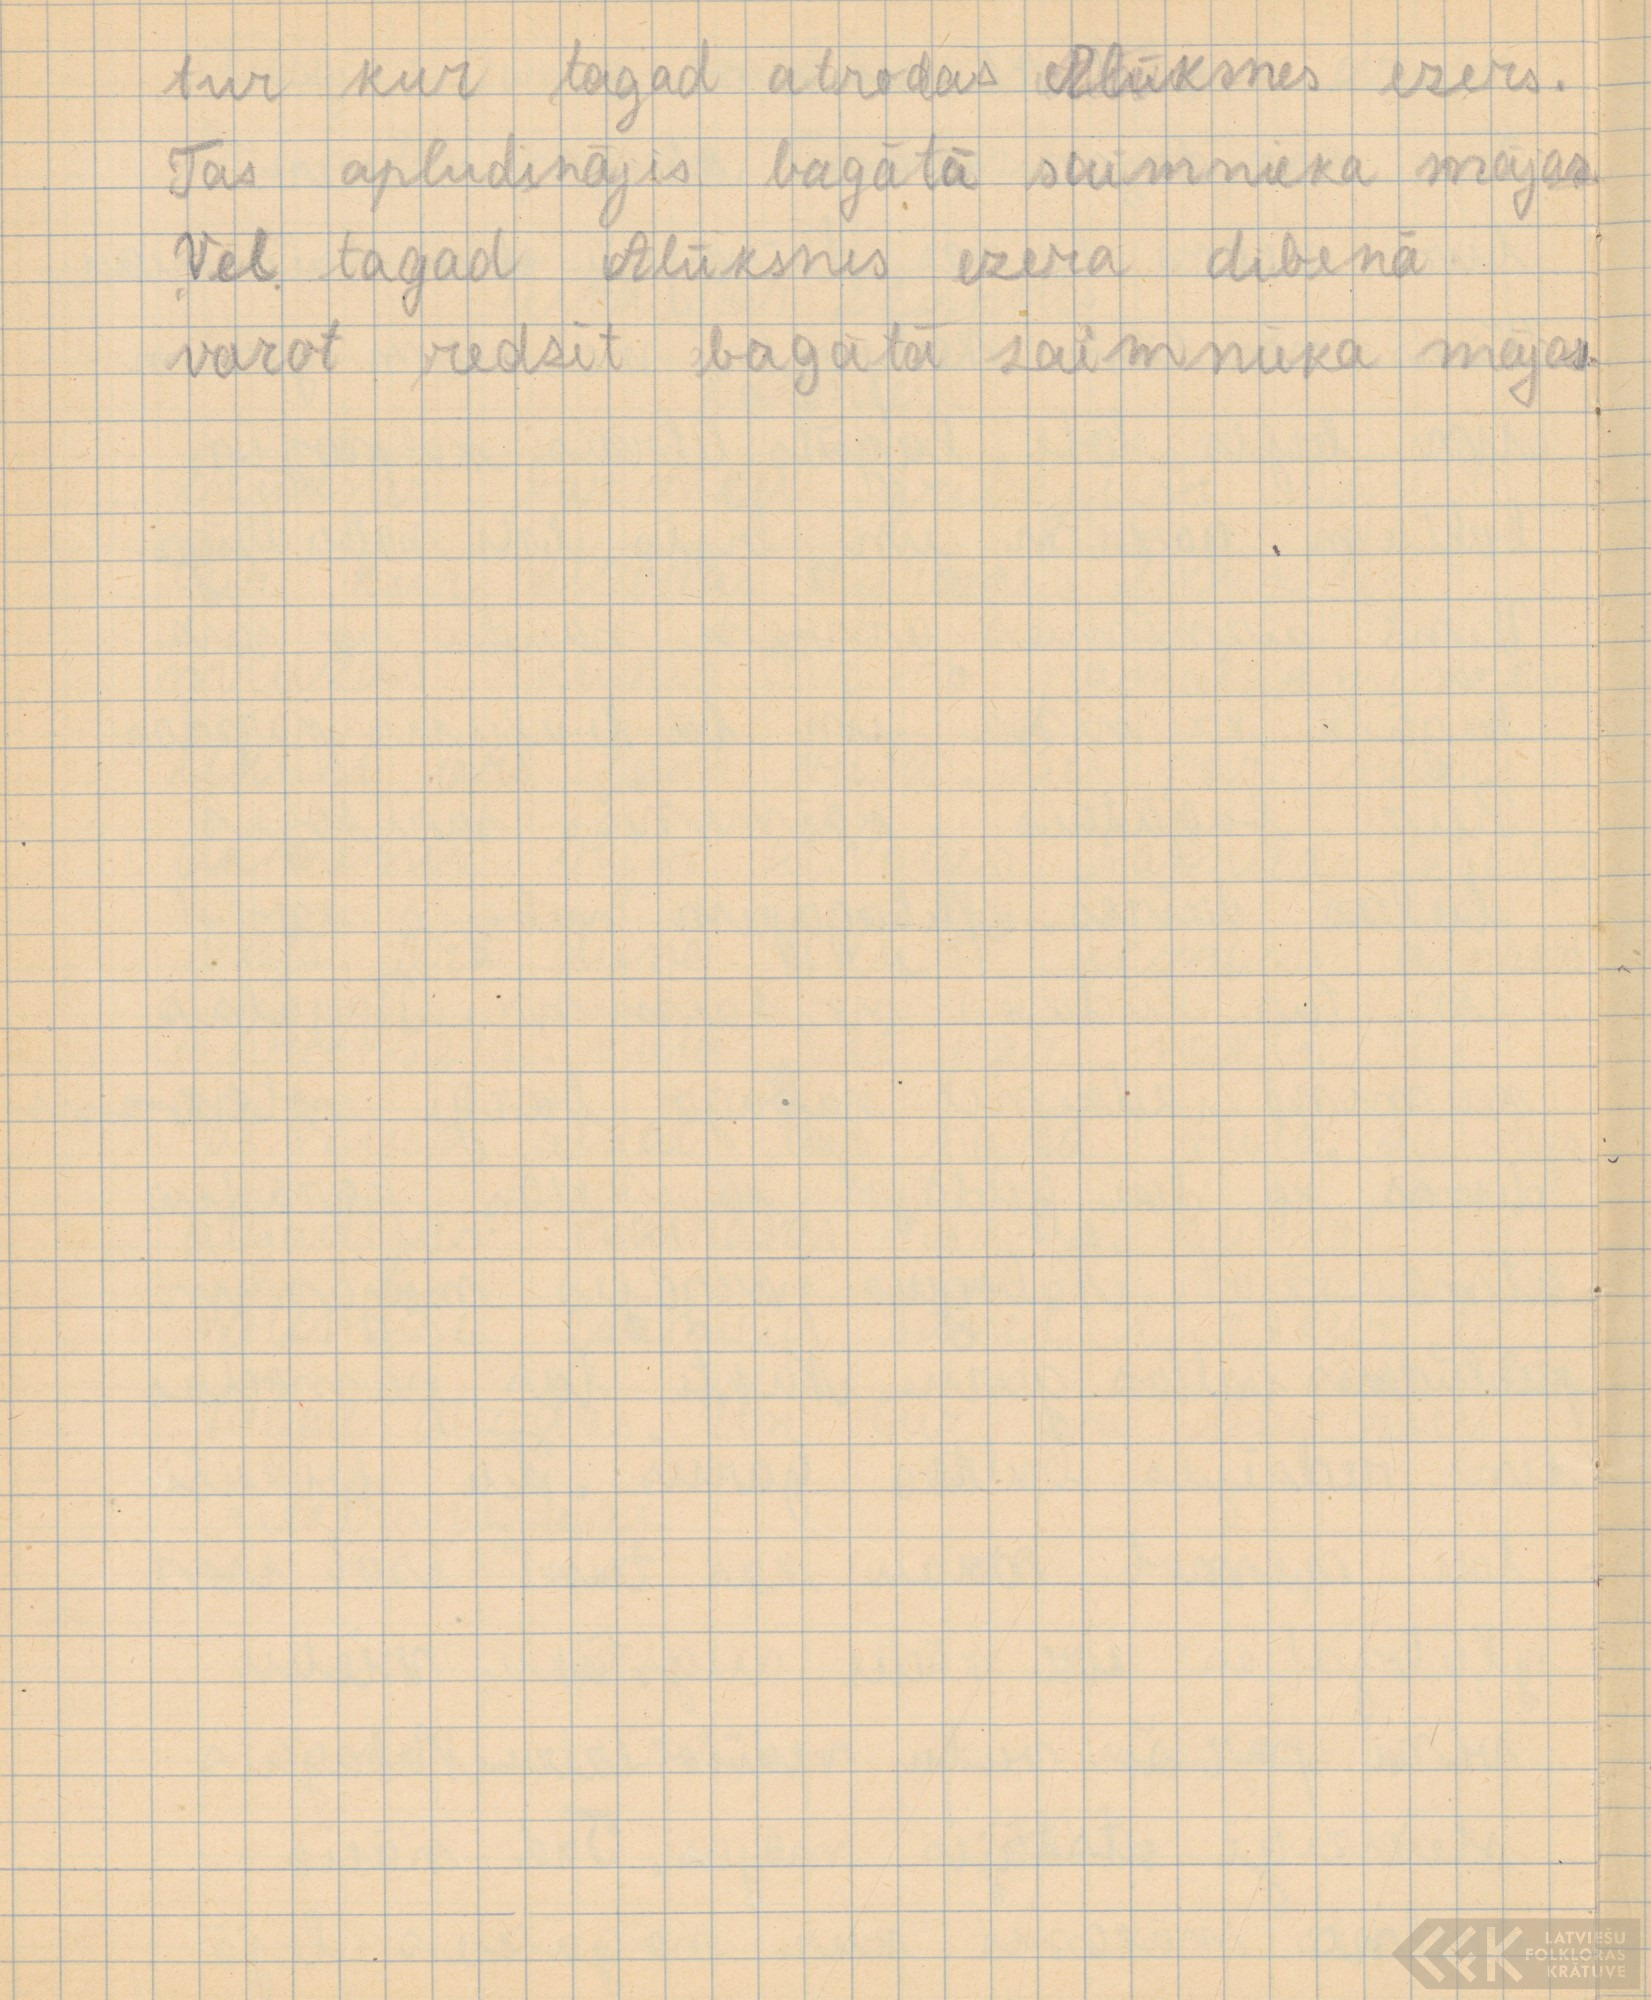 tur kur tagad atrodas Alūksnes ezers.
Tas apludinājis bagātā saimnieka mājas.
Vel tagad Alūksnes ezera dibenā
varot redzēt bagātā saimnieka mājas.
LATVIEŠU
FOLKLORAS
KRĀTUVE